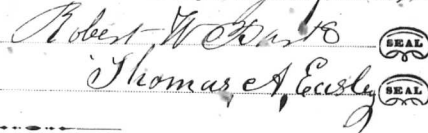 Robert W SEAL
Thomas A, Easley SEAL